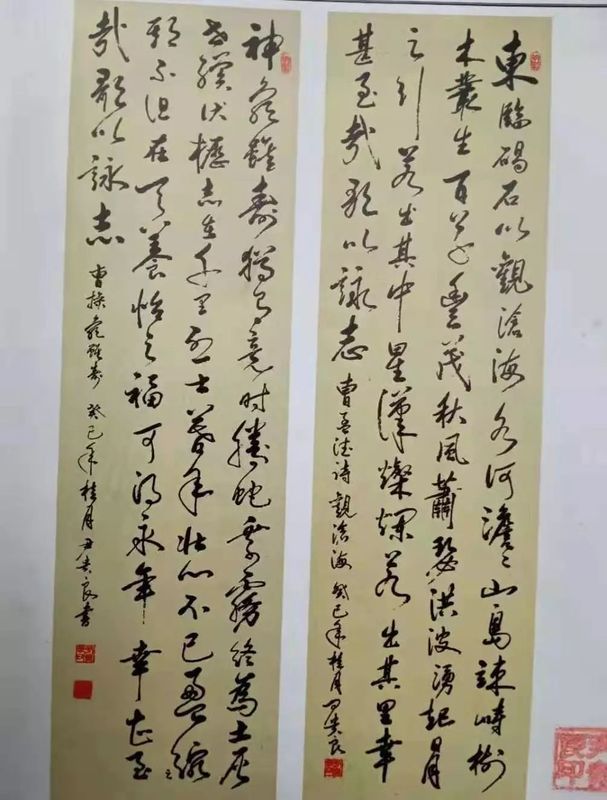 東臨碣石以觀滄海水何澹〻山島竦峙樹
木叢生百草豐茂秋風蕭瑟洪波湧起日月
之行若出其中星漢燦爛若出其里幸
甚至哉歌以詠志 曹孟德诗觀滄海 癸巳年桂月 良
神龜雖壽猶有竟時騰蛇乘霧終為土灰
老驥伏櫪志在千里烈士暮年壯心不已盈縮之
期不但在天養怡之福可得永年 幸甚至
哉歌以詠志 曹操龜雖壽 癸巳年桂月 良書